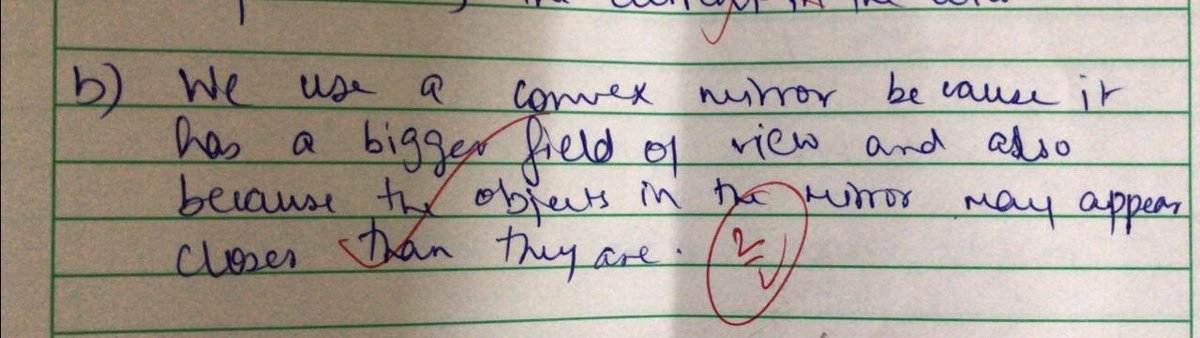 b) We use a convex mirror because it
has a bigger field of view and also
because the objects in the mirror may appear
closer than they are.
2/2